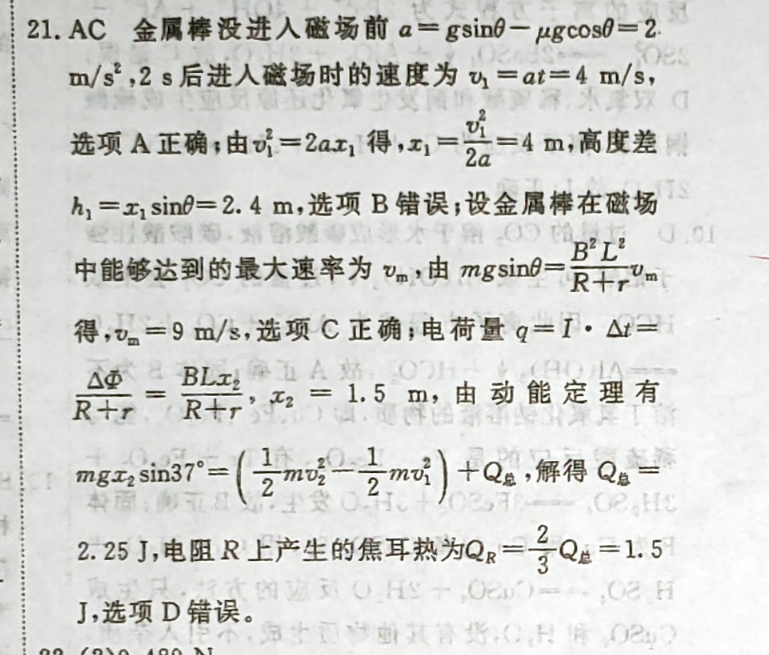 21. AC 金属棒没进入磁场前 a=gsinθ-μgcosθ=2
m/s²,2 s后进入磁场时的速度为 v₁=at=4 m/s,
选项 A 正确;由v₁²=2ax₁ 得,x₁=v₁²/2a=4 m,高度差
h₁=x₁sinθ=2.4 m,选项 B 错误;设金属棒在磁场
中能够达到的最大速率为 vₘ,由 mgsinθ=B²L²/(R+r)vₘ
得,vₘ=9 m/s,选项 C 正确;电荷量 q=I·Δt=
ΔΦ/(R+r)=BLx₂/(R+r),x₂=1.5 m,由动能定理有
mgx₂sin37°=(1/2mv₂²-1/2mv₁²)+Q总,解得 Q总=
2.25 J,电阻 R 上产生的焦耳热为Q_R=2/3Q总=1.5
J,选项 D 错误。